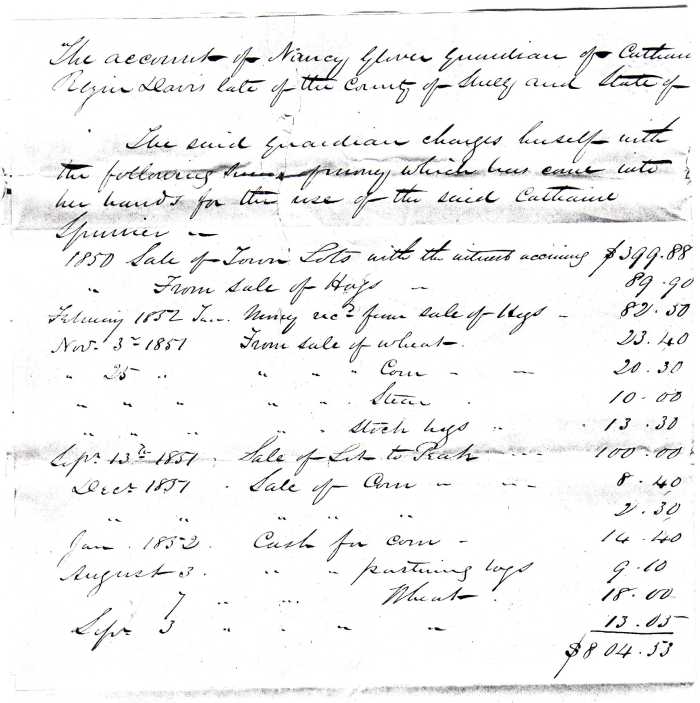 The account of Nancy Glover Guardian of Catharin
Rezin Davis late of the County of Shelby and State of
The said guardian charges herself with
the following sums of money which has come into
her hands for the use of the said Catharine
Spurrier
1850 Sale of Town Lots with the interest accruing $399.88
" From sale of Hogs " 89.90
February 1852 Money recd from sale of Hogs - 82.50
Nov. 3rd 1851 From sale of wheat. 23.40
" 25 " " " " Corn - - 20.30
" " " " " Steer 10.00
" " " " " stock hogs " 13.30
Sepr 13th 1851 Sale of Lot to Peak - - - 100.00
Decr 1851 Sale of Corn " - - 8.40
" " " " " 2.30
Jan. 1852. Cash for corn - 14.40
August 3. " " pasturing hogs 9.10
7 " " Wheat. 18.00
Sepr 3 " " " " 13.05
$804.53